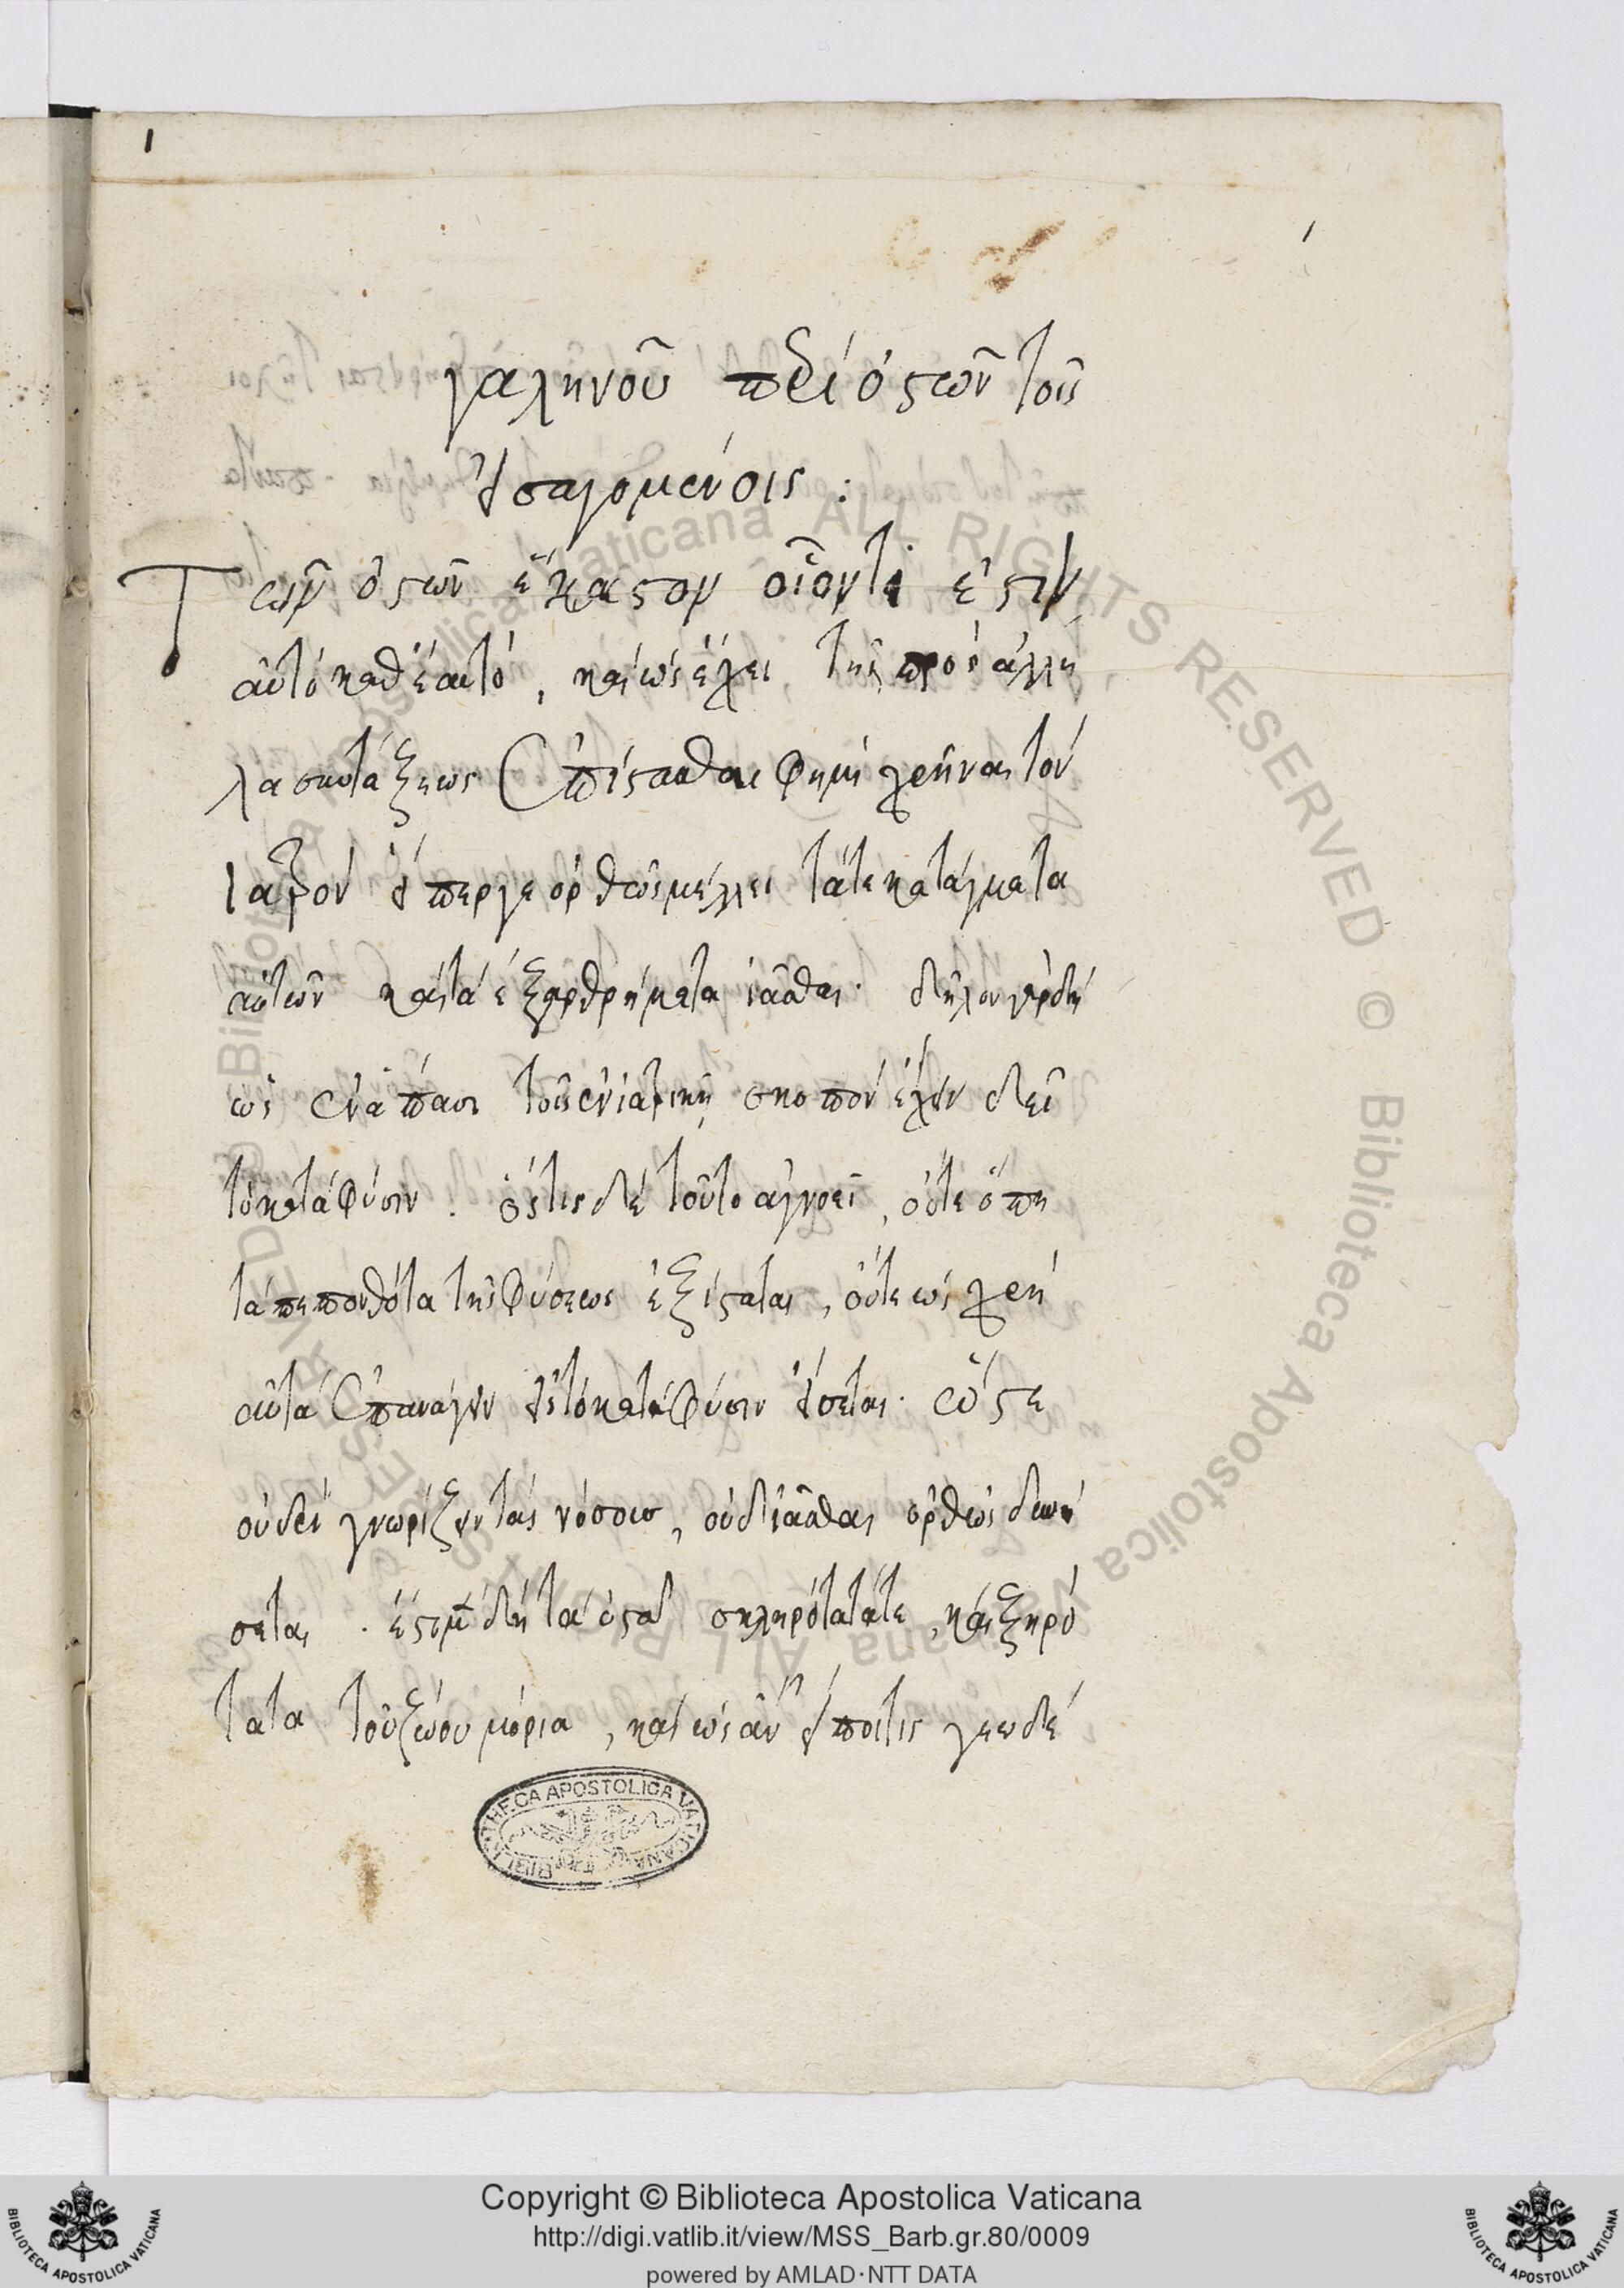 1
1
γαληνοῦ περὶ ὀστῶν τοῖς
εἰσαγομένοις :
Τῶν ὀστῶν ἕκαστον οἷόν τι ἐστὶν
αὐτὸ καθ' ἑαυτό, καὶ ὡς ἔχει τῆς πρὸς ἄλλη
λα συντάξεως ἐπίστασθαι φημὶ χρῆναι τὸν
ἰατρὸν εἴπερ γε ὀρθῶς μέλλει τά τε κατάγματα
αὐτῶν καὶ τὰ ἐξαρθρήματα ἰᾶσθαι· δῆλον γὰρ δὴ
ὡς ἐν ἅπασι τοῖς ἐν ἰατρικῇ σκοπὸν ἔχειν δεῖ
τὸ κατὰ φύσιν. ὅστις δὲ τοῦτο ἀγνοεῖ, οὔτε ὅπη
τὰ πεπονθότα τῆς φύσεως ἐξίσταται, οὔτε ὡς χρὴ
αὐτὰ ἐπανάγειν εἰς τὸ κατὰ φύσιν εἴσεται· ὥστε
οὐδὲ γνωρίζειν τὰς νόσους, οὐδ' ἰᾶσθαι ὀρθῶς δυνή
σεται. ἔστι μὲν δὴ τὰ ὀστᾶ σκληρότατά τε, καὶ ξηρό
τατα τοῦ ζώου μόρια, καὶ ὡς ἂν εἴποι τις γεωδέ
BIBLIOTHECA APOSTOLICA VATICANA
© Biblioteca Apostolica Vaticana ALL RIGHTS RESERVED
© Biblioteca Apostolica Vaticana ALL RIGHTS RESERVED
Copyright © Biblioteca Apostolica Vaticana
http://digi.vatlib.it/view/MSS_Barb.gr.80/0009
powered by AMLAD·NTT DATA
BIBLIOTECA APOSTOLICA VATICANA
BIBLIOTECA APOSTOLICA VATICANA